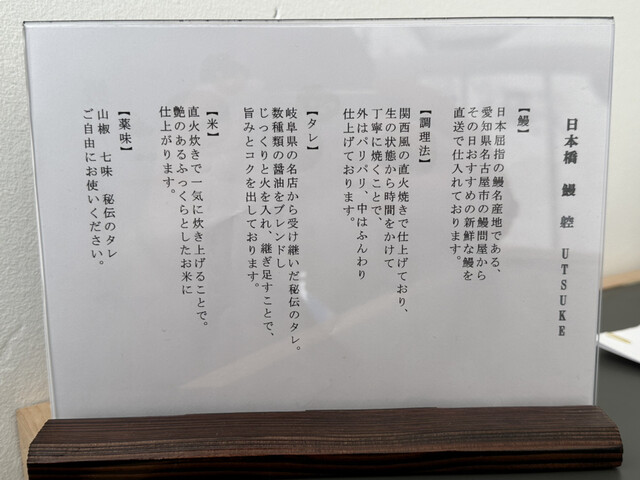 日本橋 鰻 躻 UTSUKE
【鰻】
日本屈指の鰻名産地である、
愛知県名古屋市の鰻問屋から
その日おすすめの新鮮な鰻を
直送で仕入れております。
【調理法】
関西風の直火焼きで仕上げており、
生の状態から時間をかけて
丁寧に焼くことで、
外はパリパリ、中はふんわり
仕上げております。
【タレ】
岐阜県の名店から受け継いだ秘伝のタレ。
数種類の醤油をブレンドし
じっくりと火を入れ、継ぎ足すことで、
旨みとコクを出しております。
【米】
直火炊きで一気に炊き上げることで。
艶のあるふっくらとしたお米に
仕上がります。
【薬味】
山椒 七味 秘伝のタレ
ご自由にお使いください。